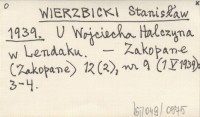 WIERZBICKI Stanisław
1939. U Wojciecha Halczyna
w Lendaku. — Zakopane
(Zakopane) 12 (2), nr 9 (1 V 1939):
3-4.